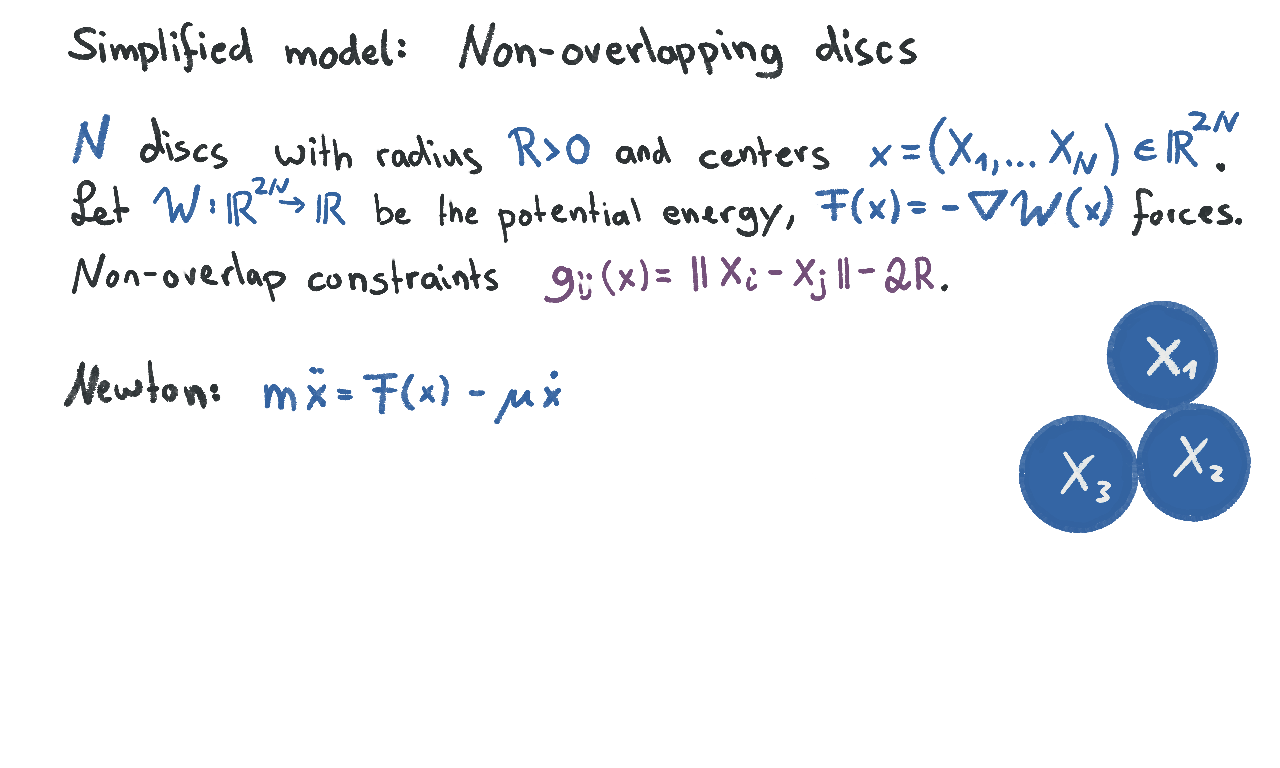 Simplified model: Non-overlapping discs
N discs with radius R>0 and centers x=(X₁,... X_N) ∈ ℝ²ᴺ.
Let W: ℝ²ᴺ→ℝ be the potential energy, F(x)= -∇W(x) forces.
Non-overlap constraints g_ij(x)= ||X_i - X_j|| - 2R.
X₁
Newton: mẍ = F(x) - μẋ
X₃ X₂